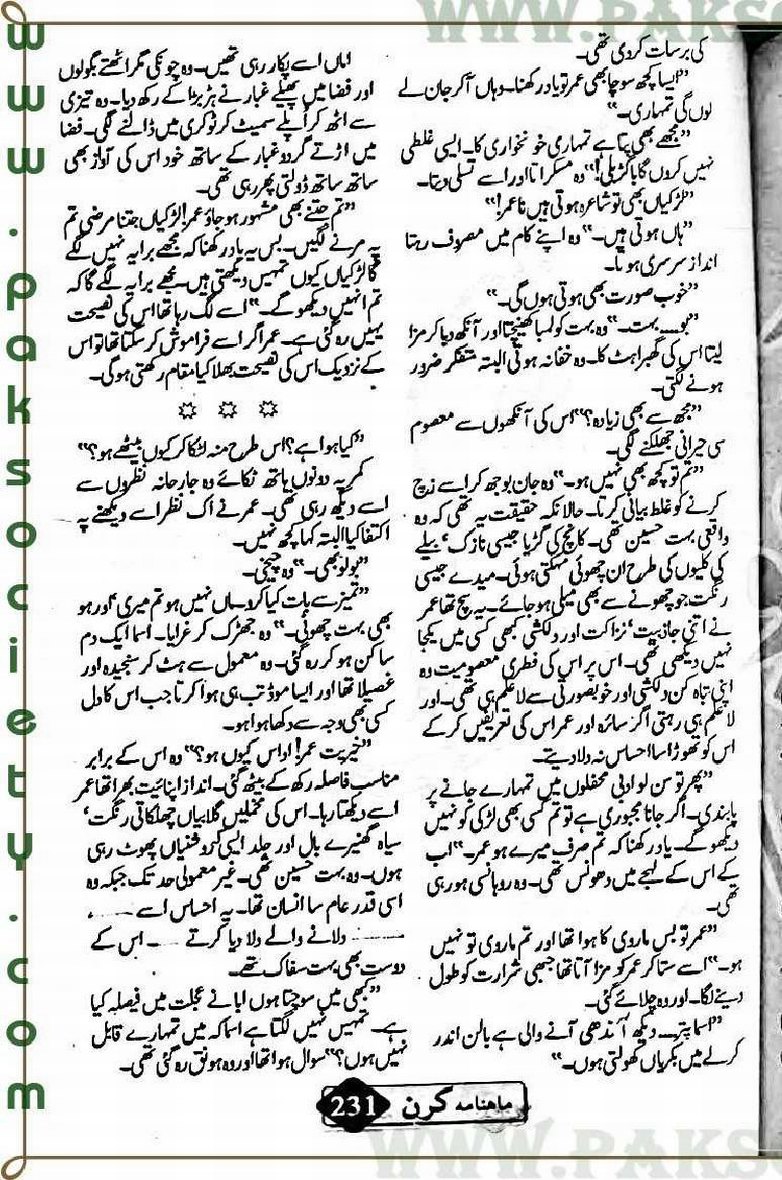 کی برسات کردی تھی۔
"ایسا کچھ سوچا بھی عمر تو یاد رکھنا۔ وہاں آکر جان لے
لوں گی تمہاری۔"
"مجھے بھی پتا ہے تمہاری خونخواری کا۔ ایسی غلطی
نہیں کروں گا باگڑ بلی!" وہ مسکراتا اور اسے تسلی دیتا۔
"لڑکیاں بھی تو شاعرہ ہوتی ہیں نا عمر!"
"ہاں ہوتی ہیں۔" وہ اپنے کام میں مصروف رہتا
انداز سرسری ہوتا۔
"خوب صورت بھی ہوتی ہوں گی۔"
"بو۔۔۔ بہت۔" وہ بہت کو لمبا کھینچتا اور آنکھ دبا کر مزا
لیتا اس کی گھبراہٹ کا۔ وہ خفا نہ ہوتی البتہ متفکر ضرور
ہونے لگتی۔
"مجھ سے بھی زیادہ؟" اس کی آنکھوں سے معصوم
سی حیرانی جھلکنے لگی۔
"تم تو کچھ بھی نہیں ہو۔" وہ جان بوجھ کر اسے زچ
کرنے کو غلط بیانی کرتا۔ حالانکہ حقیقت یہ تھی کہ وہ
واقعی بہت حسین تھی۔ کانچ کی گڑیا جیسی نازک، بیلے
کی کلیوں کی طرح ان چھوئی مہکتی ہوئی۔ میدے جیسی
رنگت جو چھونے سے بھی میلی ہو جائے۔ یہ سچ تھا عمر
نے اتنی جاذبیت، نزاکت اور دلکشی کبھی کسی میں یکجا
نہیں دیکھی تھی۔ اس پر اس کی فطری معصومیت وہ
اپنی تباہ کن دلکشی اور خوبصورتی سے لاعلم ہی تھی۔ اور
لاعلم ہی رہتی اگر سائرہ اور عمر اس کی تعریفیں کر کے
اس کو تھوڑا سا احساس نہ دلا دیتے۔
"پھر تو سن لو ادبی محفلوں میں تمہارے جانے پر
پابندی۔ اگر جانا مجبوری ہے تو تم کسی بھی لڑکی کو نہیں
دیکھو گے۔ یاد رکھنا کہ تم صرف میرے ہو عمر۔" اب
کے اس کے لہجے میں دھونس تھی۔ وہ روہانسی ہو رہی
تھی۔
"عمر تو بس ماروی کا ہوا تھا اور تم ماروی تو نہیں
ہو۔" اسے ستا کر عمر کو مزا آتا تھا جبھی شرارت کو طول
دینے لگا۔ اور وہ چلائے گئی۔
"اسما پتر۔ دیکھ آندھی آنے والی ہے بالن اندر
کرلے میں بکریاں کھولتی ہوں۔"
اماں اسے پکار رہی تھیں۔ وہ چونکی مگر اٹھتے بگولوں
اور فضا میں پھیلے غبار نے ہڑبڑا کے رکھ دیا۔ وہ تیزی
سے اٹھ کر اُپلے سمیٹ کر ٹوکری میں ڈالنے لگی۔ فضا
میں اڑتے گرد و غبار کے ساتھ خود اس کی آواز بھی
ساتھ ساتھ ڈولتی پھر رہی تھی۔
"تم جتنے بھی مشہور ہو جاؤ عمر! لڑکیاں جتنا مرضی تم
پہ مرنے لگیں۔ بس یہ یاد رکھنا کہ مجھے برا یہ نہیں لگے
گا لڑکیاں کیوں تمہیں دیکھتی ہیں۔ مجھے برا یہ لگے گا کہ
تم انہیں دیکھو گے۔" اسے لگ رہا تھا اس کی نصیحت
یہیں رہ گئی ہے۔ عمر اگر اسے فراموش کر سکتا تھا تو اس
کے نزدیک اس کی نصیحت بھلا کیا مقام رکھتی ہوگی۔
☼ ☼ ☼
"کیا ہوا ہے؟ اس طرح منہ لٹکا کر کیوں بیٹھے ہو؟"
کمر پہ دونوں ہاتھ ٹکائے وہ جارحانہ نظروں سے
اسے دیکھ رہی تھی۔ عمر نے اک نظر اسے دیکھنے پہ
اکتفا کیا البتہ کہا کچھ نہیں۔
"بولو بھی۔" وہ چیخی۔
"تمیز سے بات کیا کرو ساس نہیں ہو تم میری، اور ہو
بھی بہت چھوٹی۔" وہ جھڑک کر غرایا۔ اسما ایک دم
ساکن ہو کر رہ گئی۔ وہ معمول سے ہٹ کر سنجیدہ اور
غصیلا تھا اور ایسا موڈ تب ہی ہوا کرتا جب اس کا دل
کسی بھی وجہ سے دکھا ہوا ہو۔
"خیریت عمر! اداس کیوں ہو؟" وہ اس کے برابر
مناسب فاصلہ رکھ کے بیٹھ گئی۔ انداز اپنائیت بھرا تھا عمر
اسے دیکھتا رہا۔ اس کی مخملیں گلابیاں چھلکاتی رنگت،
سیاہ گھنیرے بال اور جلد ایسی کہ روشنیاں پھوٹ رہی
ہوں۔ وہ بہت حسین تھی۔ غیر معمولی حد تک جبکہ وہ
اسی قدر عام سا انسان تھا۔ یہ احساس اسے ۔۔۔۔
۔۔۔۔ دلانے والے دلا دیا کرتے ۔۔۔ اس کے
دوست بھی بہت سفاک تھے۔
"کبھی میں سوچتا ہوں ابا نے عجلت میں فیصلہ کیا
ہے۔ تمہیں نہیں لگتا ہے اسما کہ میں تمہارے قابل
نہیں ہوں؟" سوال ہوا تھا اور وہ ہونق رہ گئی تھی۔
ماہنامہ کرن 231
www.paksociety.com
WWW.PAKSO
WWW.PAKS